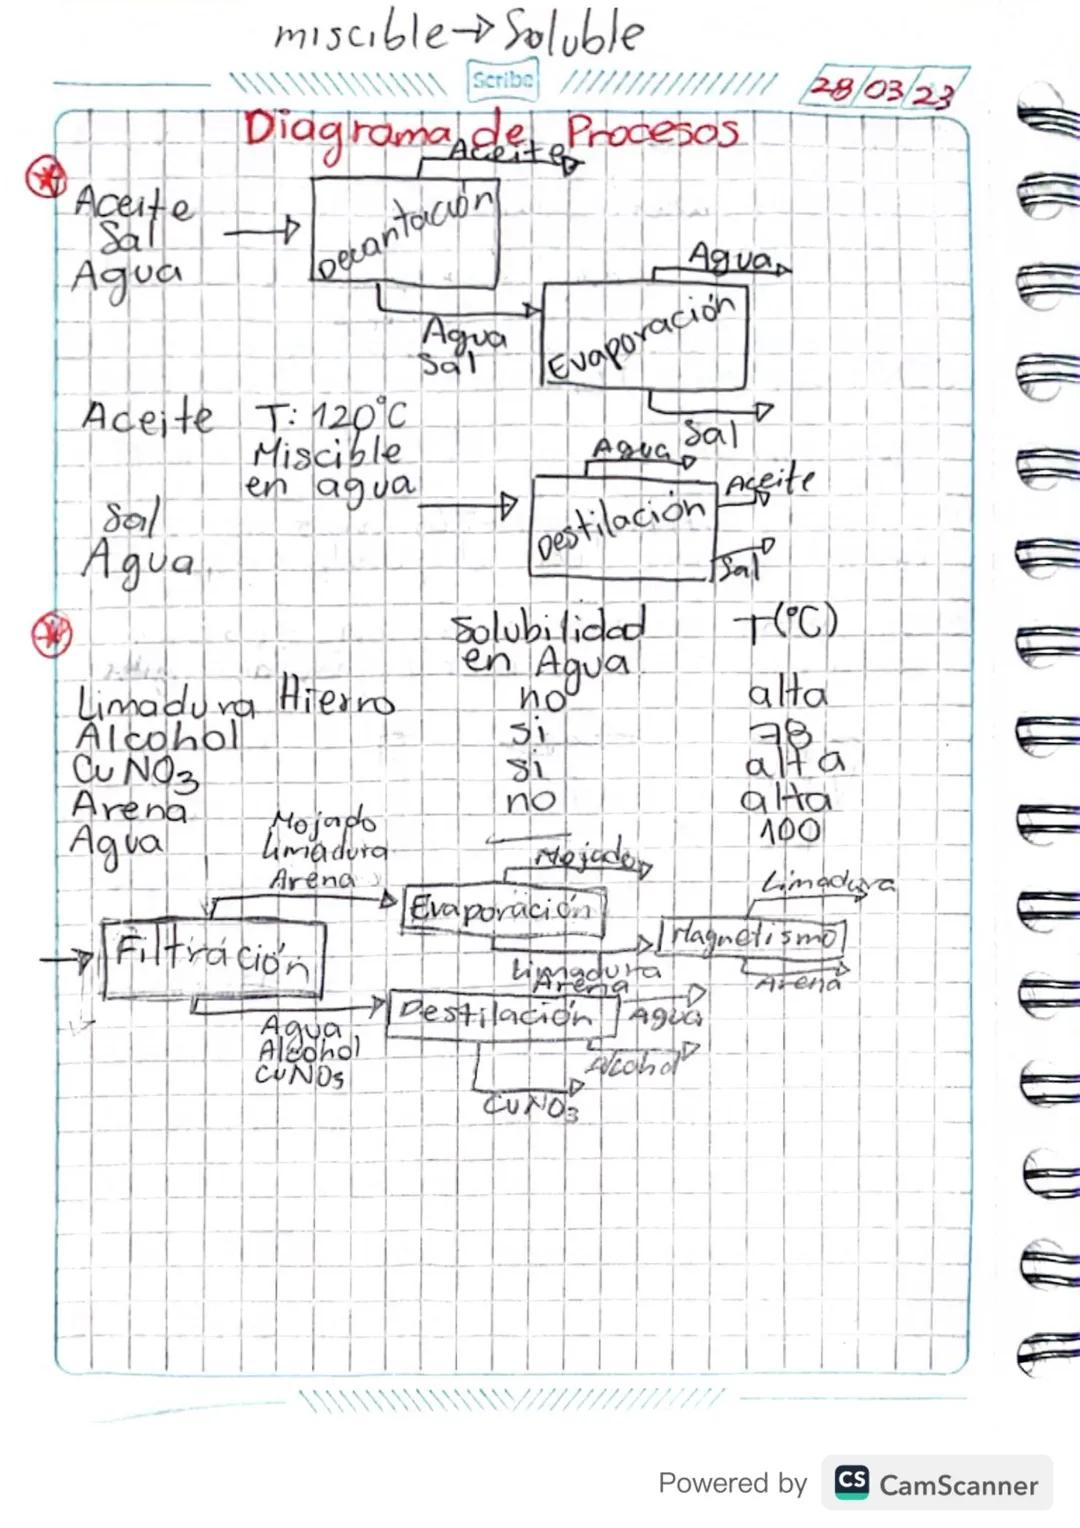 miscible→Soluble
Scribe
28/03/23
Diagrama de Procesos
Aceite
Aceite
Sal
Agua
Decantación
Agua
Evaporación
Agua
Sal
Sal
Aceite T: 120°C
Miscible
en agua
Sal
Agua
Agua
Aceite
Destilación
Sal
Solubilidad T(°C)
en Agua
Limadura Hierro no alta
Alcohol si 78
CuNO3 si alta
Arena no alta
Agua 100
Mojado
Limadura
Arena
Mojado
Limadura
Evaporación
Filtración
Magnetismo
Limadura
Arena
Arena
Destilación
Agua
Agua
Alcohol
CuNO3
Alcohol
CuNO3
Powered by CS CamScanner